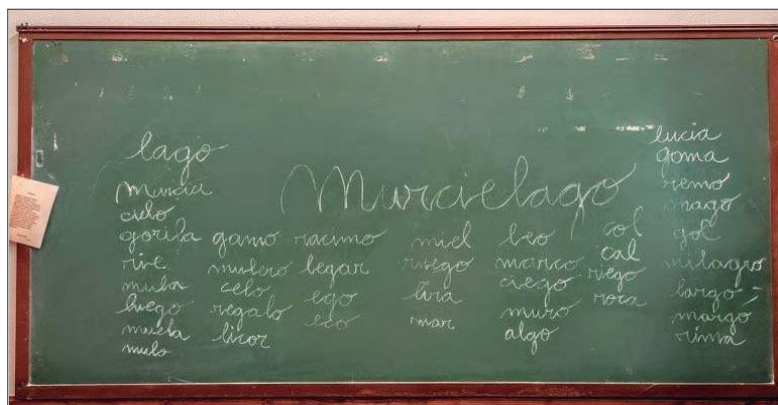 Murcielago
lago
murcia
cielo
gorila
rie
mula
luego
muela
mulo
gamo
mulero
celo
regalo
licor
racimo
legar
ego
eco
miel
ruego
lira
mar
leo
marco
ciego
muro
algo
col
cal
riego
roca
lucia
goma
remo
mago
gol
milagro
largo
margo
rima